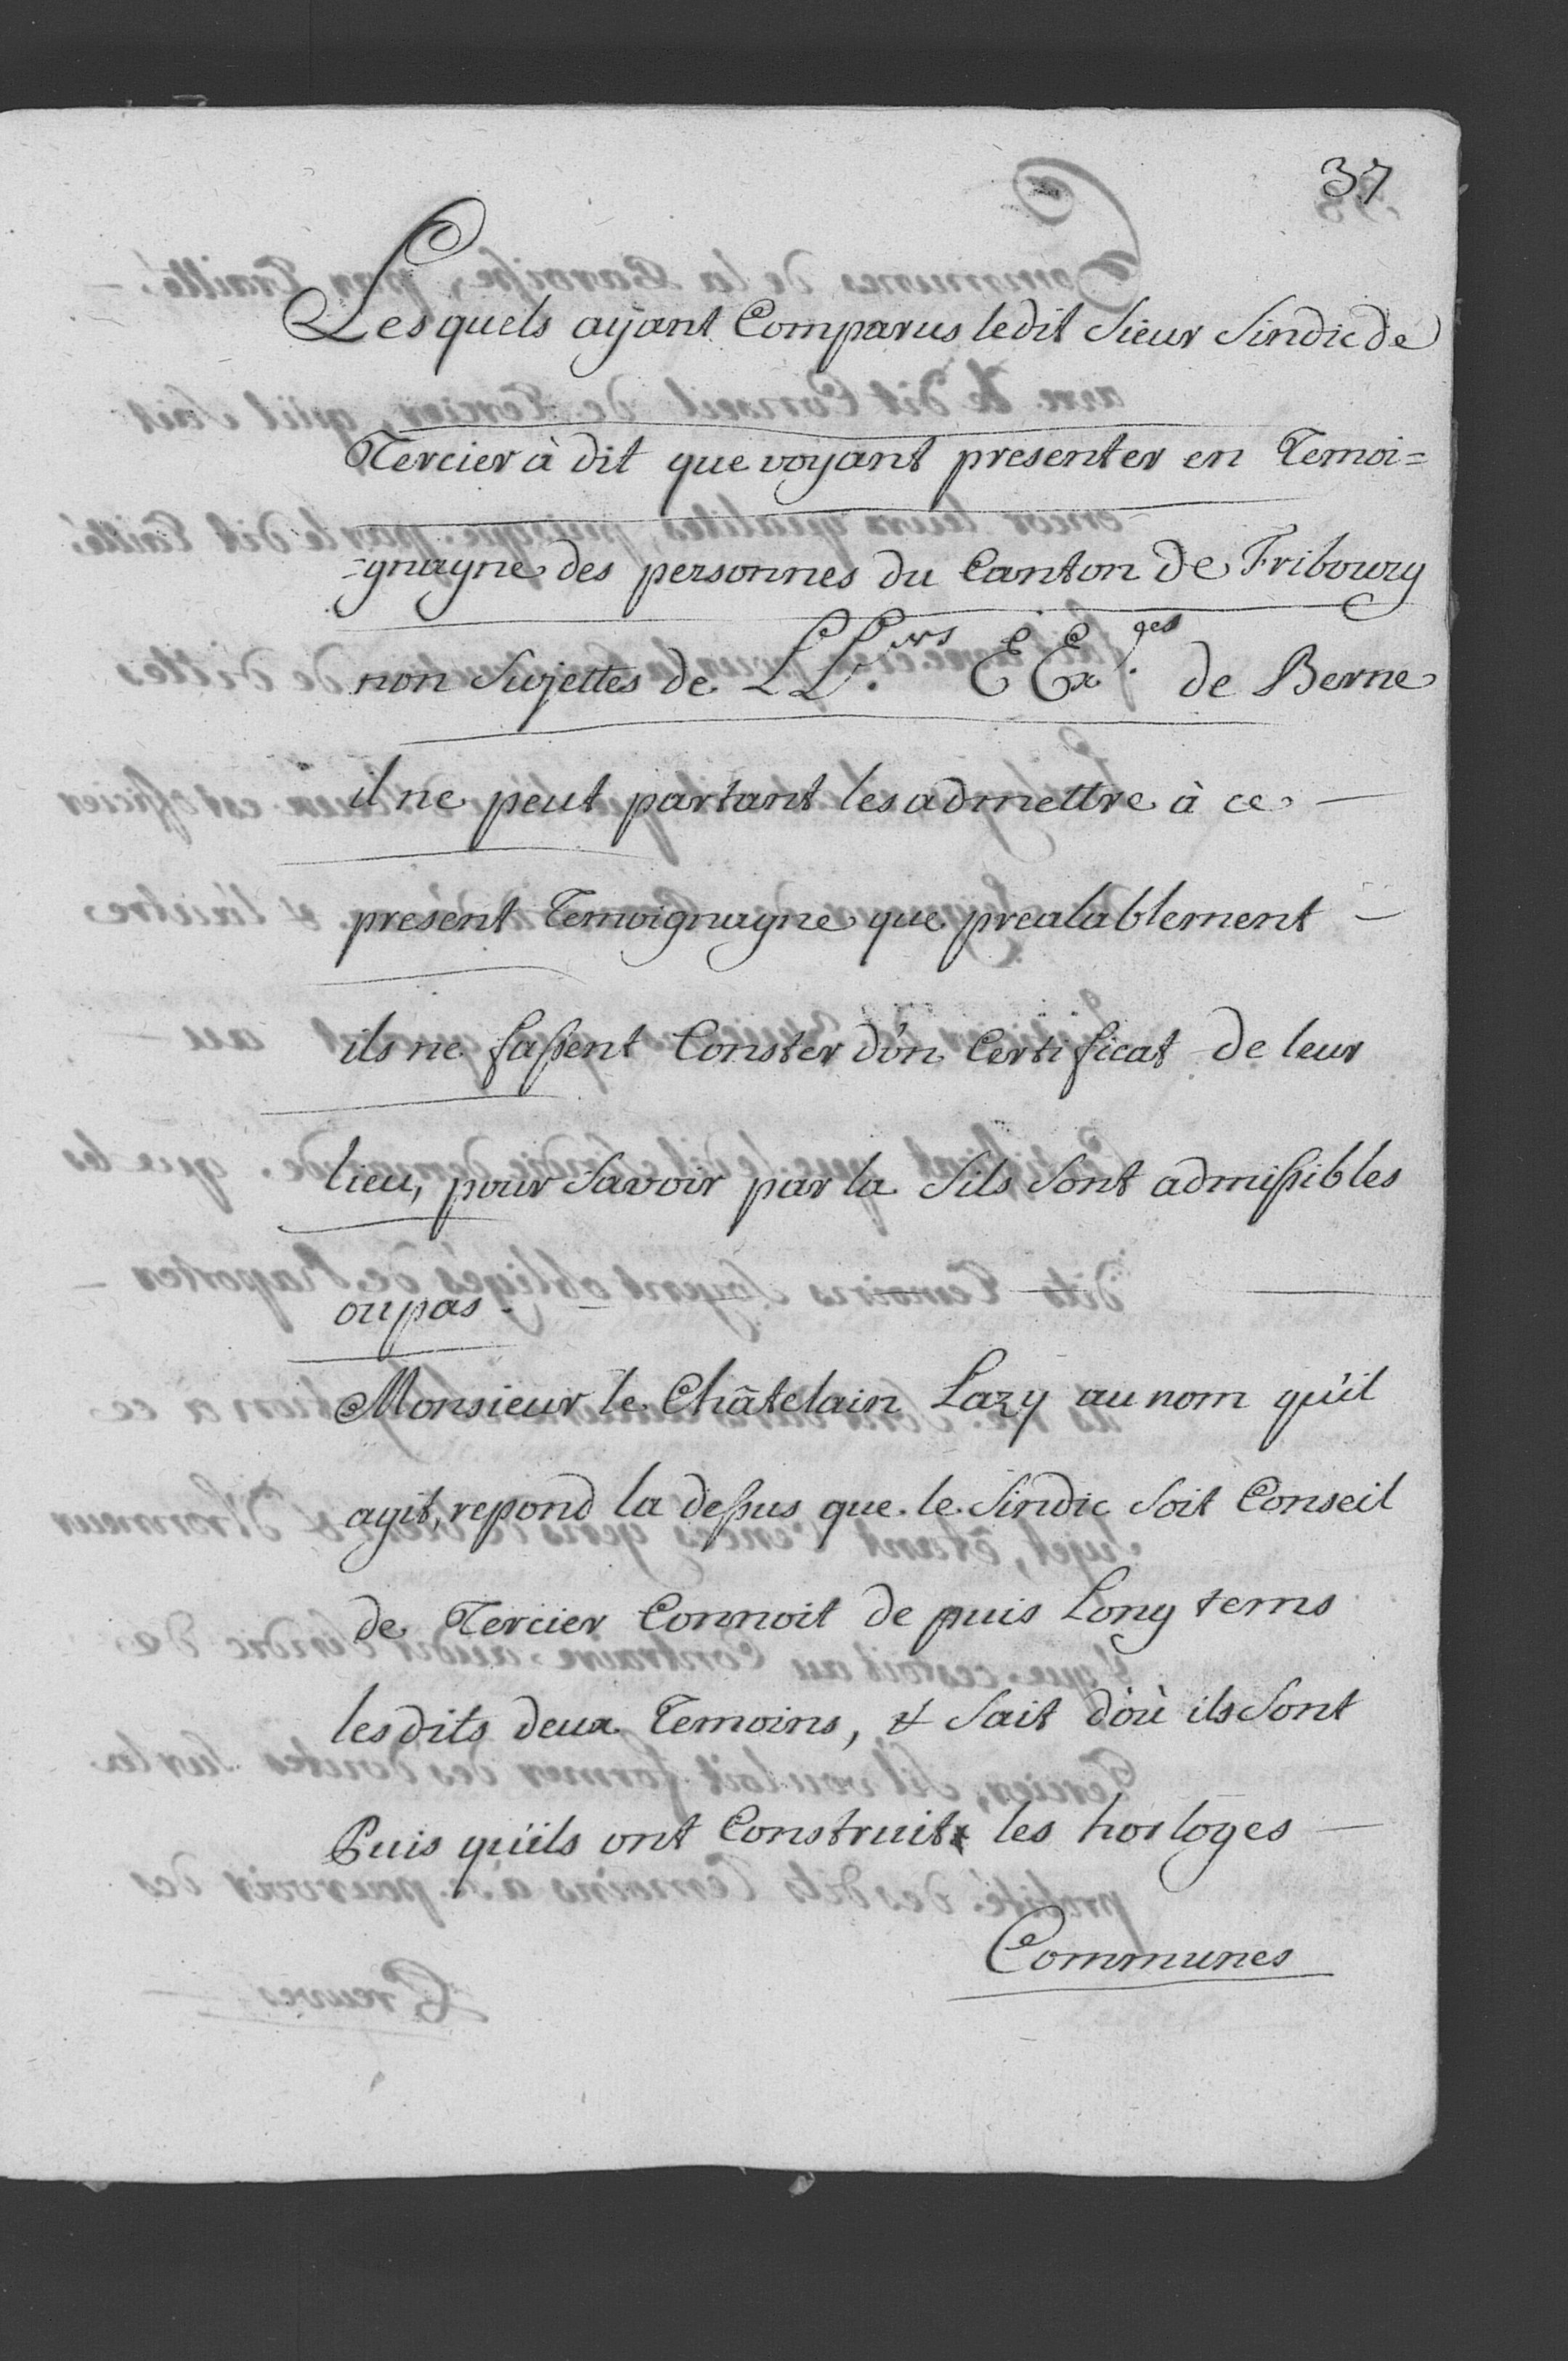 37
Lesquels aÿant Comparus ledit Sieur Sindic de
Tercier à dit que voyant presenter en Temoi=
=gnagne des personnes du Canton de Fribourg
non Sujettes de LL.rs EEx.ces de Berne
il ne peut partant les admettre à ce —
present Temoignagne que prealablement —
ils ne fassent Conster d'ùn Certificat de leur
lieu, pour Savoir par la Sils Sont admissibles
ou pas. — — — — —
Monsieur le Châtelain Lazy au nom qu'il
agit, repond la dessus que le Sindic soit Conseil
de Tercier Connoit de puis Long tems
les dits deux Temoins, & Sait d'où ils Sont
Puis qu'ils ont Construit les horloges —
Communes